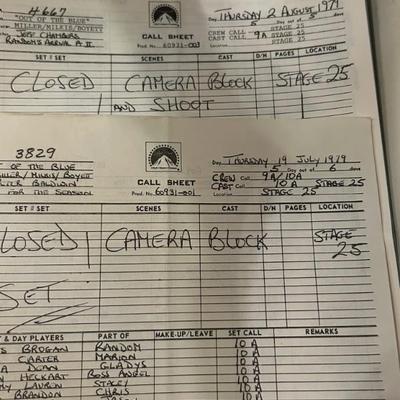 4667
"OUT OF THE BLUE"
MILLER/MILKIS/BOYETT
JEFF CHAMBERS
RANDOM'S ARRIVAL PT II
CALL SHEET
Prod. No. 60931-003
Day THURSDAY 2 AUGUST 1979
5 Day out of 5 days
CREW CALL
STAGE 25
CAST CALL 9A
STAGE 25
Location
SET # SET SCENES CAST D/N PAGES LOCATION
CLOSED CAMERA BLOCK STAGE 25
AND SHOOT
3829
OF THE BLUE
MILLER/MILKIS/BOYETT
PETER BALDWIN
FOR THE SEASON
CALL SHEET
Prod. No. 60931-001
Day THURSDAY 19 JULY 1979
5 Day out of 6 days
CREW Call 9A/10A
CAST Call 10A STAGE 25
Location STAGE 25
SET # SET SCENES CAST D/N PAGES LOCATION
CLOSED CAMERA BLOCK STAGE
25
SET
& DAY PLAYERS PART OF MAKE-UP/LEAVE SET CALL REMARKS
BROGAN RANDOM 10A
CARTER MARION 10A
DEAN GLADYS 10A
HECKART BOSS ANGEL 10A
LAURON STACEY 10A
BRANDON CHRIS 10A